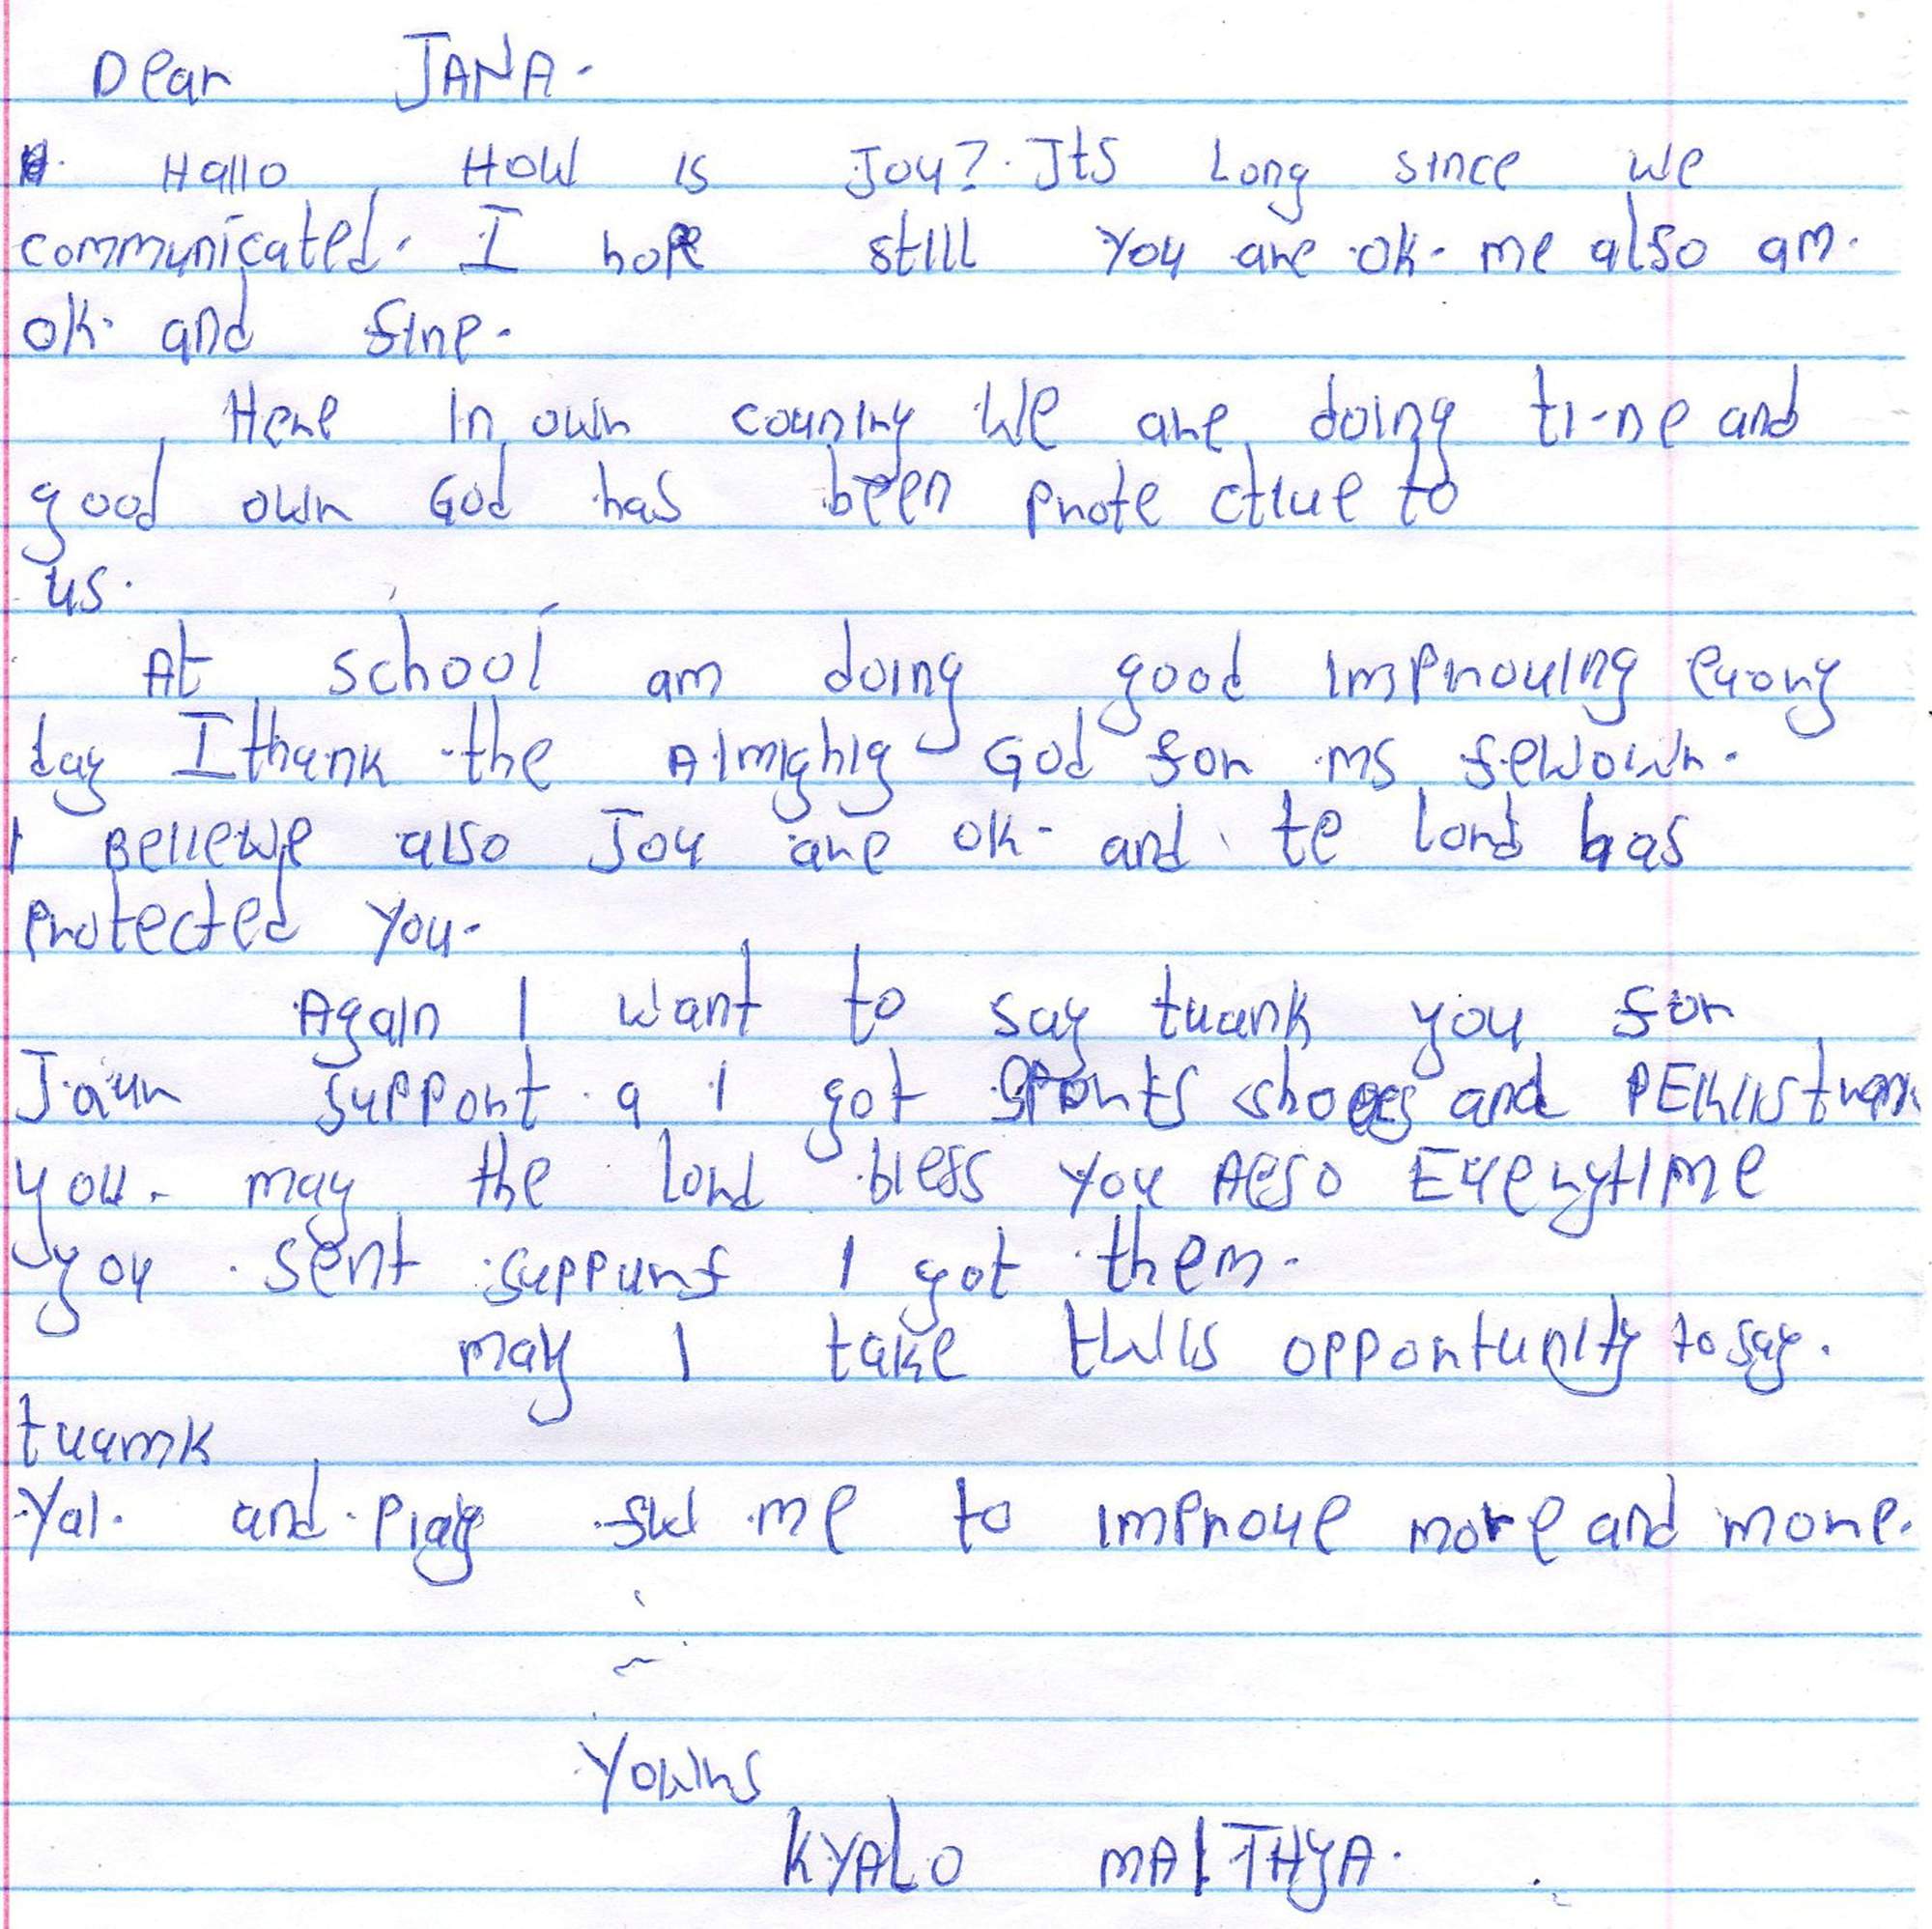 Dear JANA.
Hallo, How is Jou? Its Long since we
communicated. I hope still you are ok. me also am.
ok. and fine.
Here in own counrny We are doing ti-ne and
good own God has been prote ctiue to
us.
At school am doing good improuing euory
day I thank the Almighig God for ms fewown.
I Beliewe also Jou are ok. and te lord has
protected you.
Again I want to say tuank you for
Jaur support a I got sports shoes and
you. may the lord bless you Aeso Euerytime
you sent suppurt I got them.
may I take thiis opportunity to say.
tuamk
Yal. and me to improue more and more.
Yowrs
KYALO MAITHYA.